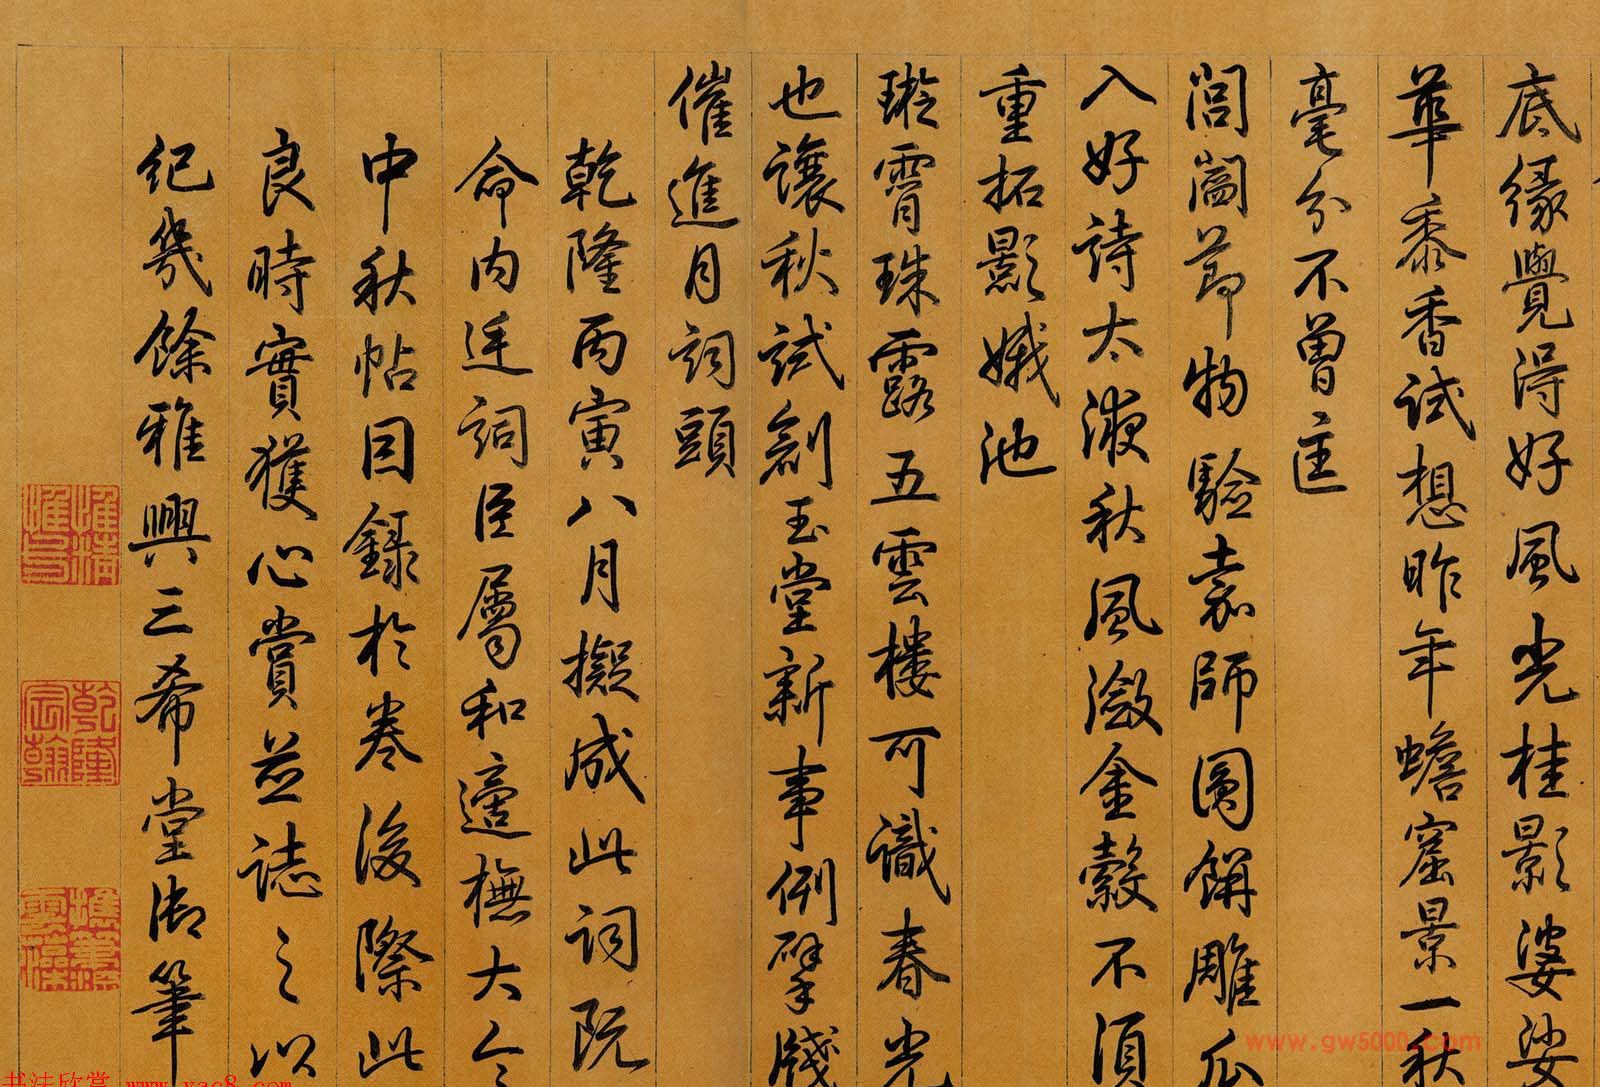 底緣覺得好風光桂影婆娑
華黍香試想昨年蟾窟景一秋
毫分不曾差
閶闔節物驗嘉師圓餅雕瓜
入好詩太液秋風瀲金縠不須
重拓影娥池
璇霄珠露五雲樓可識春光
也讓秋試創玉堂新事例擘牋
催進月詞頭
乾隆丙寅八月擬成此詞既
命內廷詞臣屬和適撫大令
中秋帖因錄於卷後際此
良時實獲心賞並誌之以
紀幾餘雅興三希堂御筆
惟精惟一
乾隆宸翰
www.gw5000.com
书法欣赏 www.yac8.com